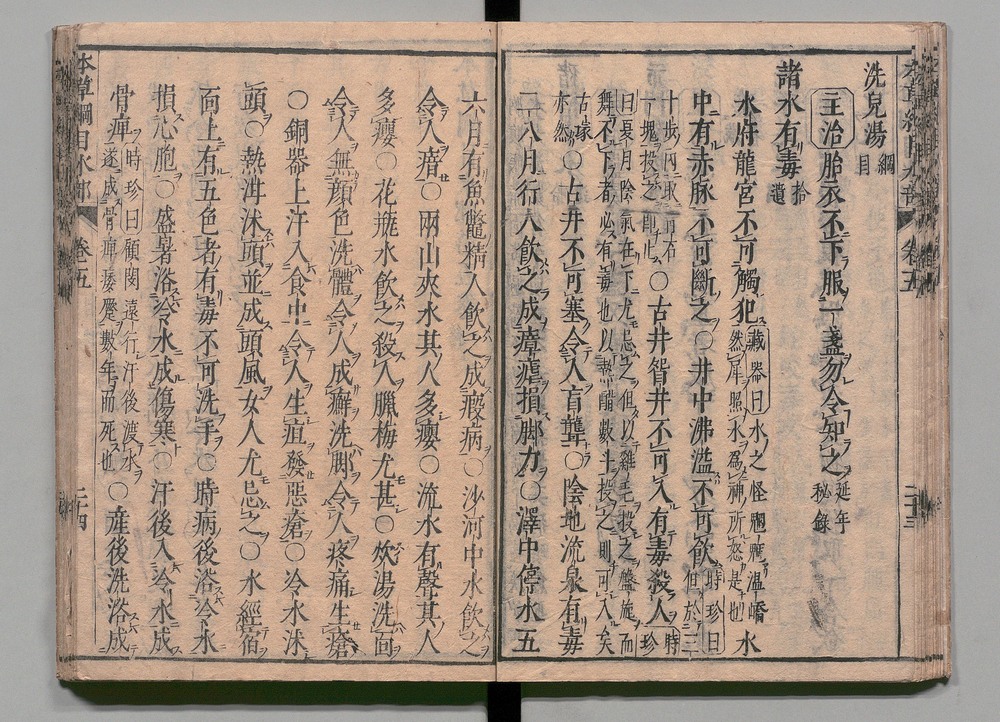 洗兒湯綱目
主治胞衣不下服一盞勿令知之延年秘錄
諸水有毒拾遺
水府龍宮不可觸犯藏器曰水之怪魍魎溫嶠然犀照水爲神所怒是也水
中有赤脉不可斷之○井中沸溢不可飲時珍曰但於三
十步內取青石一塊投之即止○古井眢井不可入有毒殺人時珍
曰夏月陰氣在下尤忌之但以雞毛投之盤旋而舞不下者必有毒也以熱醋數斗投之則可入矣
古塚亦然○古井不可塞令人盲聾○陰地流泉有毒
二八月行人飲之成瘴瘧損脚力○澤中停水五
六月有魚鱉精人飲之成瘕病○沙河中水飲之
令人瘖○兩山夾水其人多癭○流水有聲其人
多癭○花瓶水飲之殺人臘梅尤甚○炊湯洗面
令人無顔色洗體令人成癬洗脚令人疼痛生瘡
○銅器上汗入食中令人生疽發惡瘡○冷水沐
頭○熱泔沐頭並成頭風女人尤忌之○水經宿
面上有五色者有毒不可洗手○時病後浴冷水
損心胞○盛暑浴冷水成傷寒○汗後入冷水成
骨痺時珍曰顧閔遠行汗後渡水遂成骨痺痿躄數年而死也○產後洗浴成
本草綱目水部 卷五 二十四